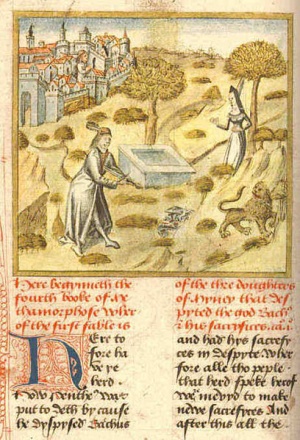 Here begynneth the
fourth booke of Me
thamorphose wher
of the first fable is
of the thre doughters
of Myney that des
pyted the god Bachus
& his sacrifices. ca. i.
HEre to
fore ha
ve ye
herd.
how Pentheus was
put to deth by cause
he dyspysed Bachus
and had hys sacrefy
ces in despyte Wher
fore alle tho peple.
that herd speke therof
wer mevyd to make
newe sacrefyces And
after this alle the